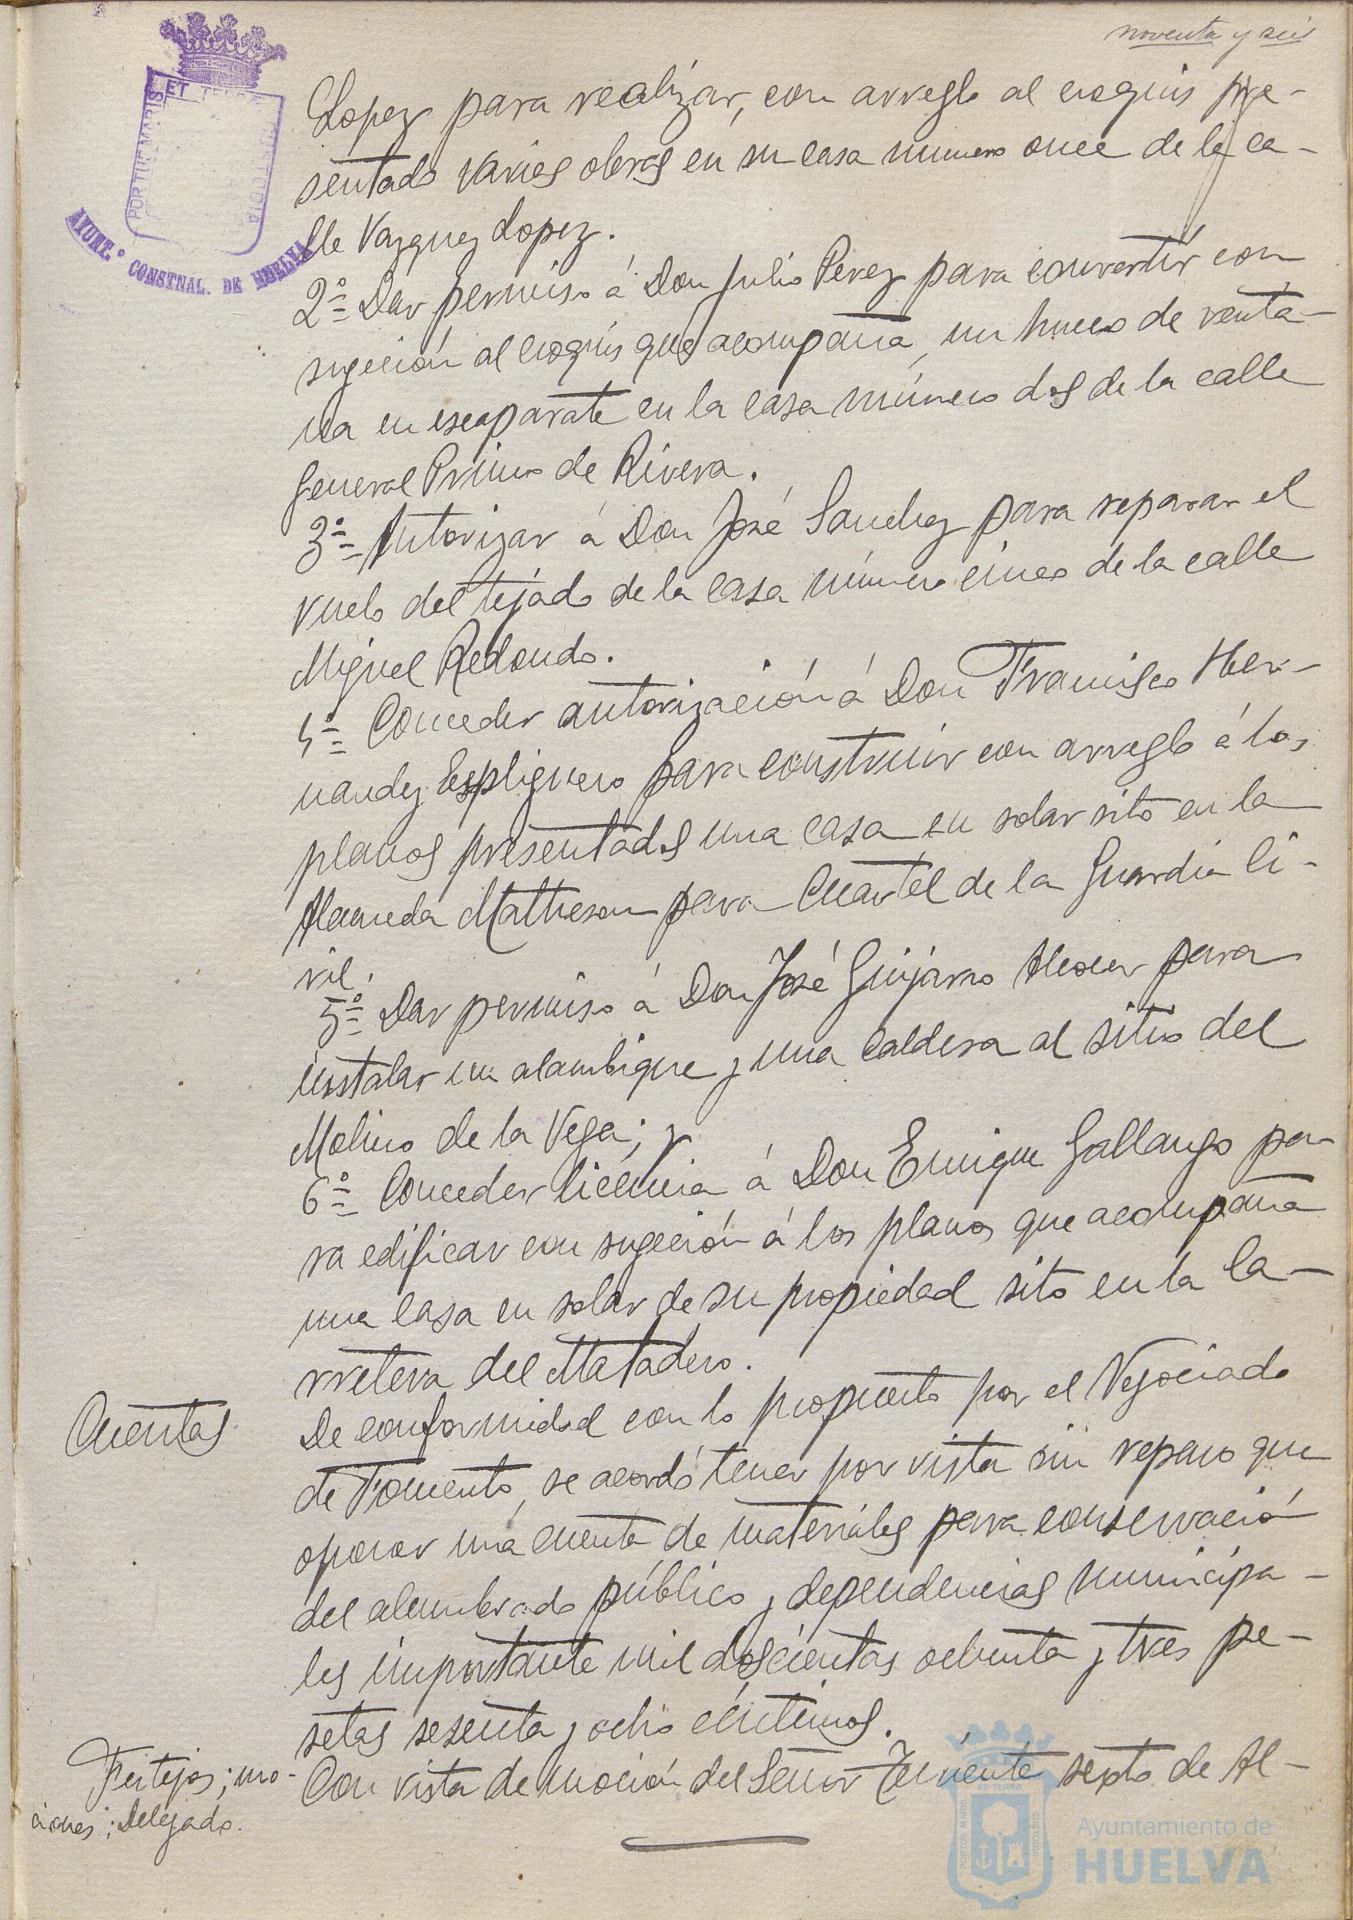 noventa y seis
Lopez para realizar, con arreglo al croquis pre-
sentado varias obras en su casa numero once de la ca-
lle Vazquez Lopez.
2º= Dar permiso á Don Julio Perez para convertir con
sugeción al croquis que acompaña, un hueco de venta-
na en escaparate en la casa número dos de la calle
General Primo de Rivera.
3º= Autorizar á Don José Sanchez para reparar el
vuelo del tejado de la casa número cinco de la calle
Miguel Redondo.
4º= Conceder autorización á Don Francisco Her-
nandez Espliguero para construir con arreglo á los
planos presentados una casa en solar sito en la
Alameda Matheson para Cuartel de la Guardia Ci-
vil.
5º= Dar permiso á Don José Guijarro Alcocer para
instalar un alambique y una caldera al sitio del
Molino de la Vega; y
6º= Conceder licencia á Don Enrique Gallango pa-
ra edificar con sugeción á los planos que acompaña
una casa en solar de su propiedad sito en la Ca-
rretera del Matadero.
Cuentas
De conformidad con lo propuesto por el Negociado
de Fomento, se acordó tener por vista sin reparo que
oponer una cuenta de materiales para conservación
del alumbrado público y dependencias municipa-
les importante mil doscientas ochenta y tres pe-
setas sesenta y ocho céntimos.
Festejos; mo-
ciones; Delegado.
Con vista de moción del Señor Teniente sexto de Al-
PORTUS MARIS ET TERRE CUSTODIA
AYUNT.º CONSTNAL. DE HUELVA
Ayuntamiento de
HUELVA